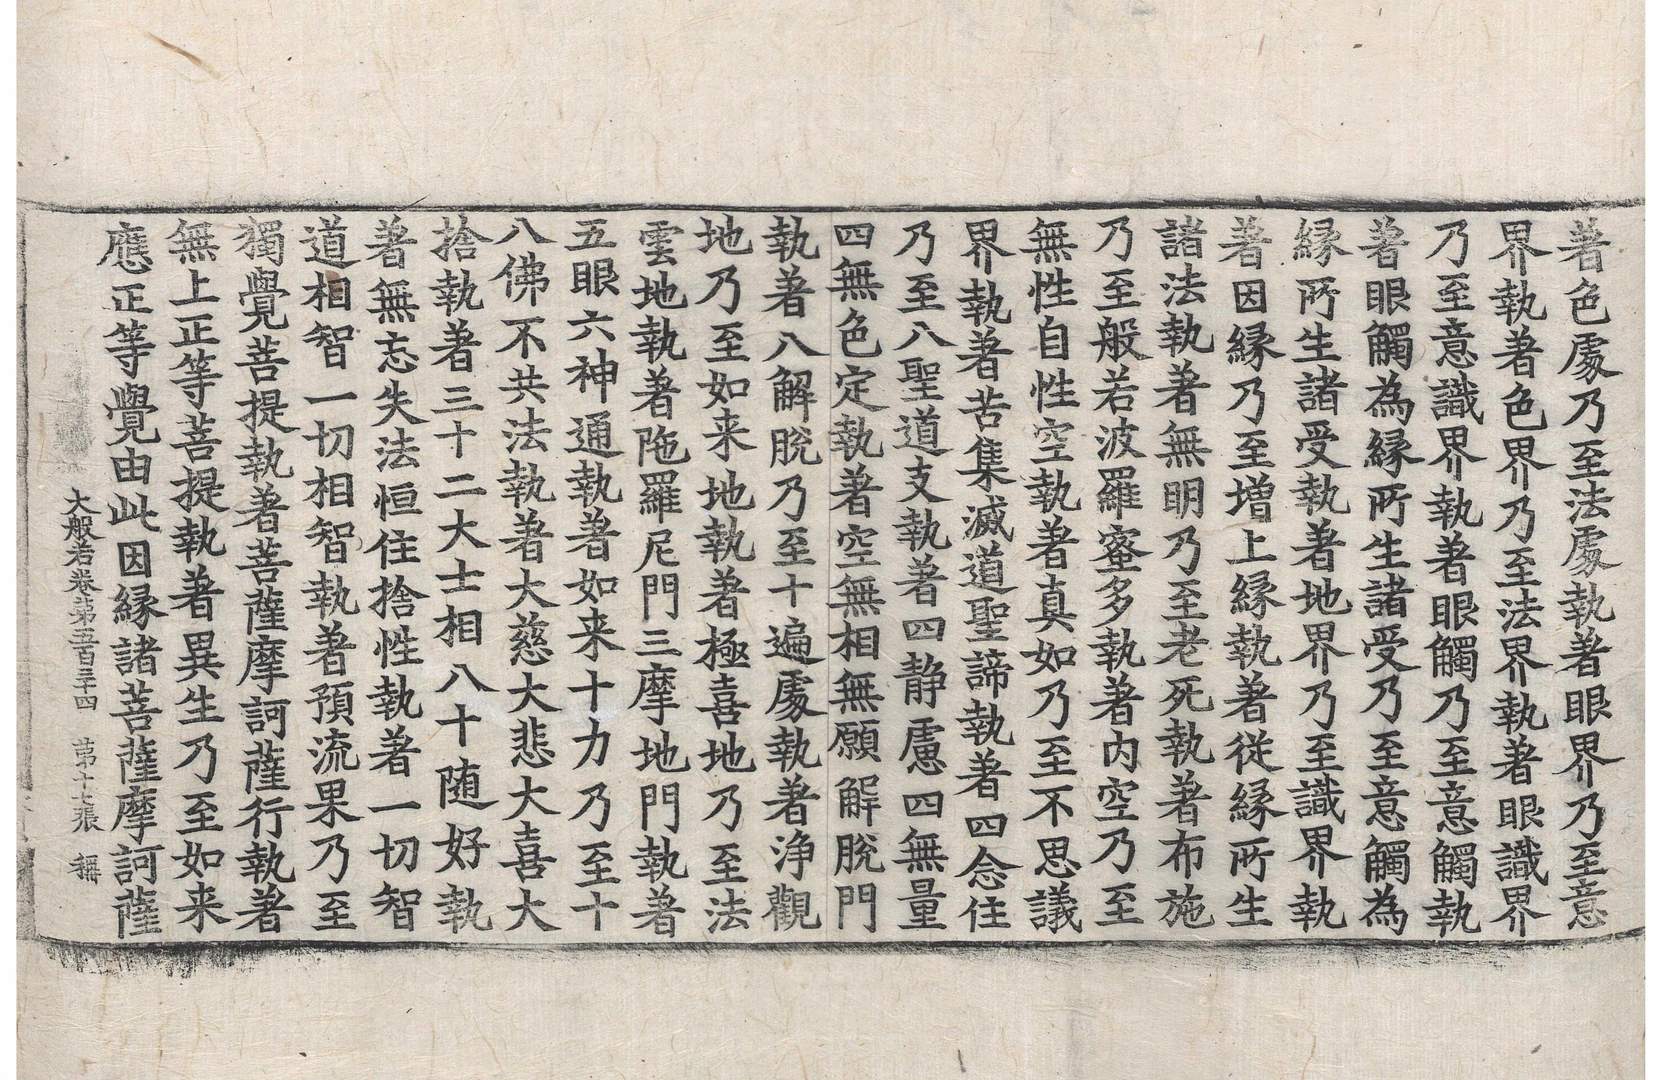 著色處乃至法處執著眼界乃至意
界執著色界乃至法界執著眼識界
乃至意識界執著眼觸乃至意觸執
著眼觸為緣所生諸受乃至意觸為
緣所生諸受執著地界乃至識界執
著因緣乃至增上緣執著從緣所生
諸法執著無明乃至老死執著布施
乃至般若波羅蜜多執著內空乃至
無性自性空執著真如乃至不思議
界執著苦集滅道聖諦執著四念住
乃至八聖道支執著四靜慮四無量
四無色定執著空無相無願解脫門
執著八解脫乃至十遍處執著淨觀
地乃至如来地執著極喜地乃至法
雲地執著陁羅尼門三摩地門執著
五眼六神通執著如来十力乃至十
八佛不共法執著大慈大悲大喜大
捨執著三十二大士相八十随好執
著無忘失法恒住捨性執著一切智
道相智一切相智執著預流果乃至
獨覺菩提執著菩薩摩訶薩行執著
無上正等菩提執著異生乃至如来
應正等覺由此因緣諸菩薩摩訶薩
大般若卷第五百三十四 第十七張 稱